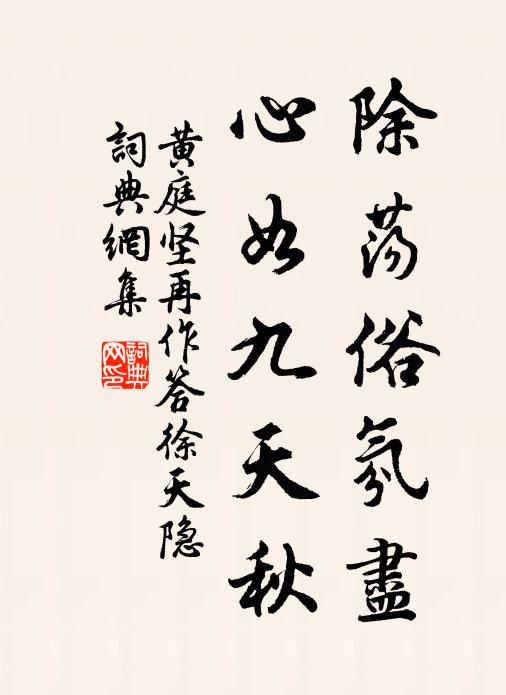 除荡俗氛盡
心如九天秋
黄庭坚再作答徐天隐
詞典網集
詞典網印